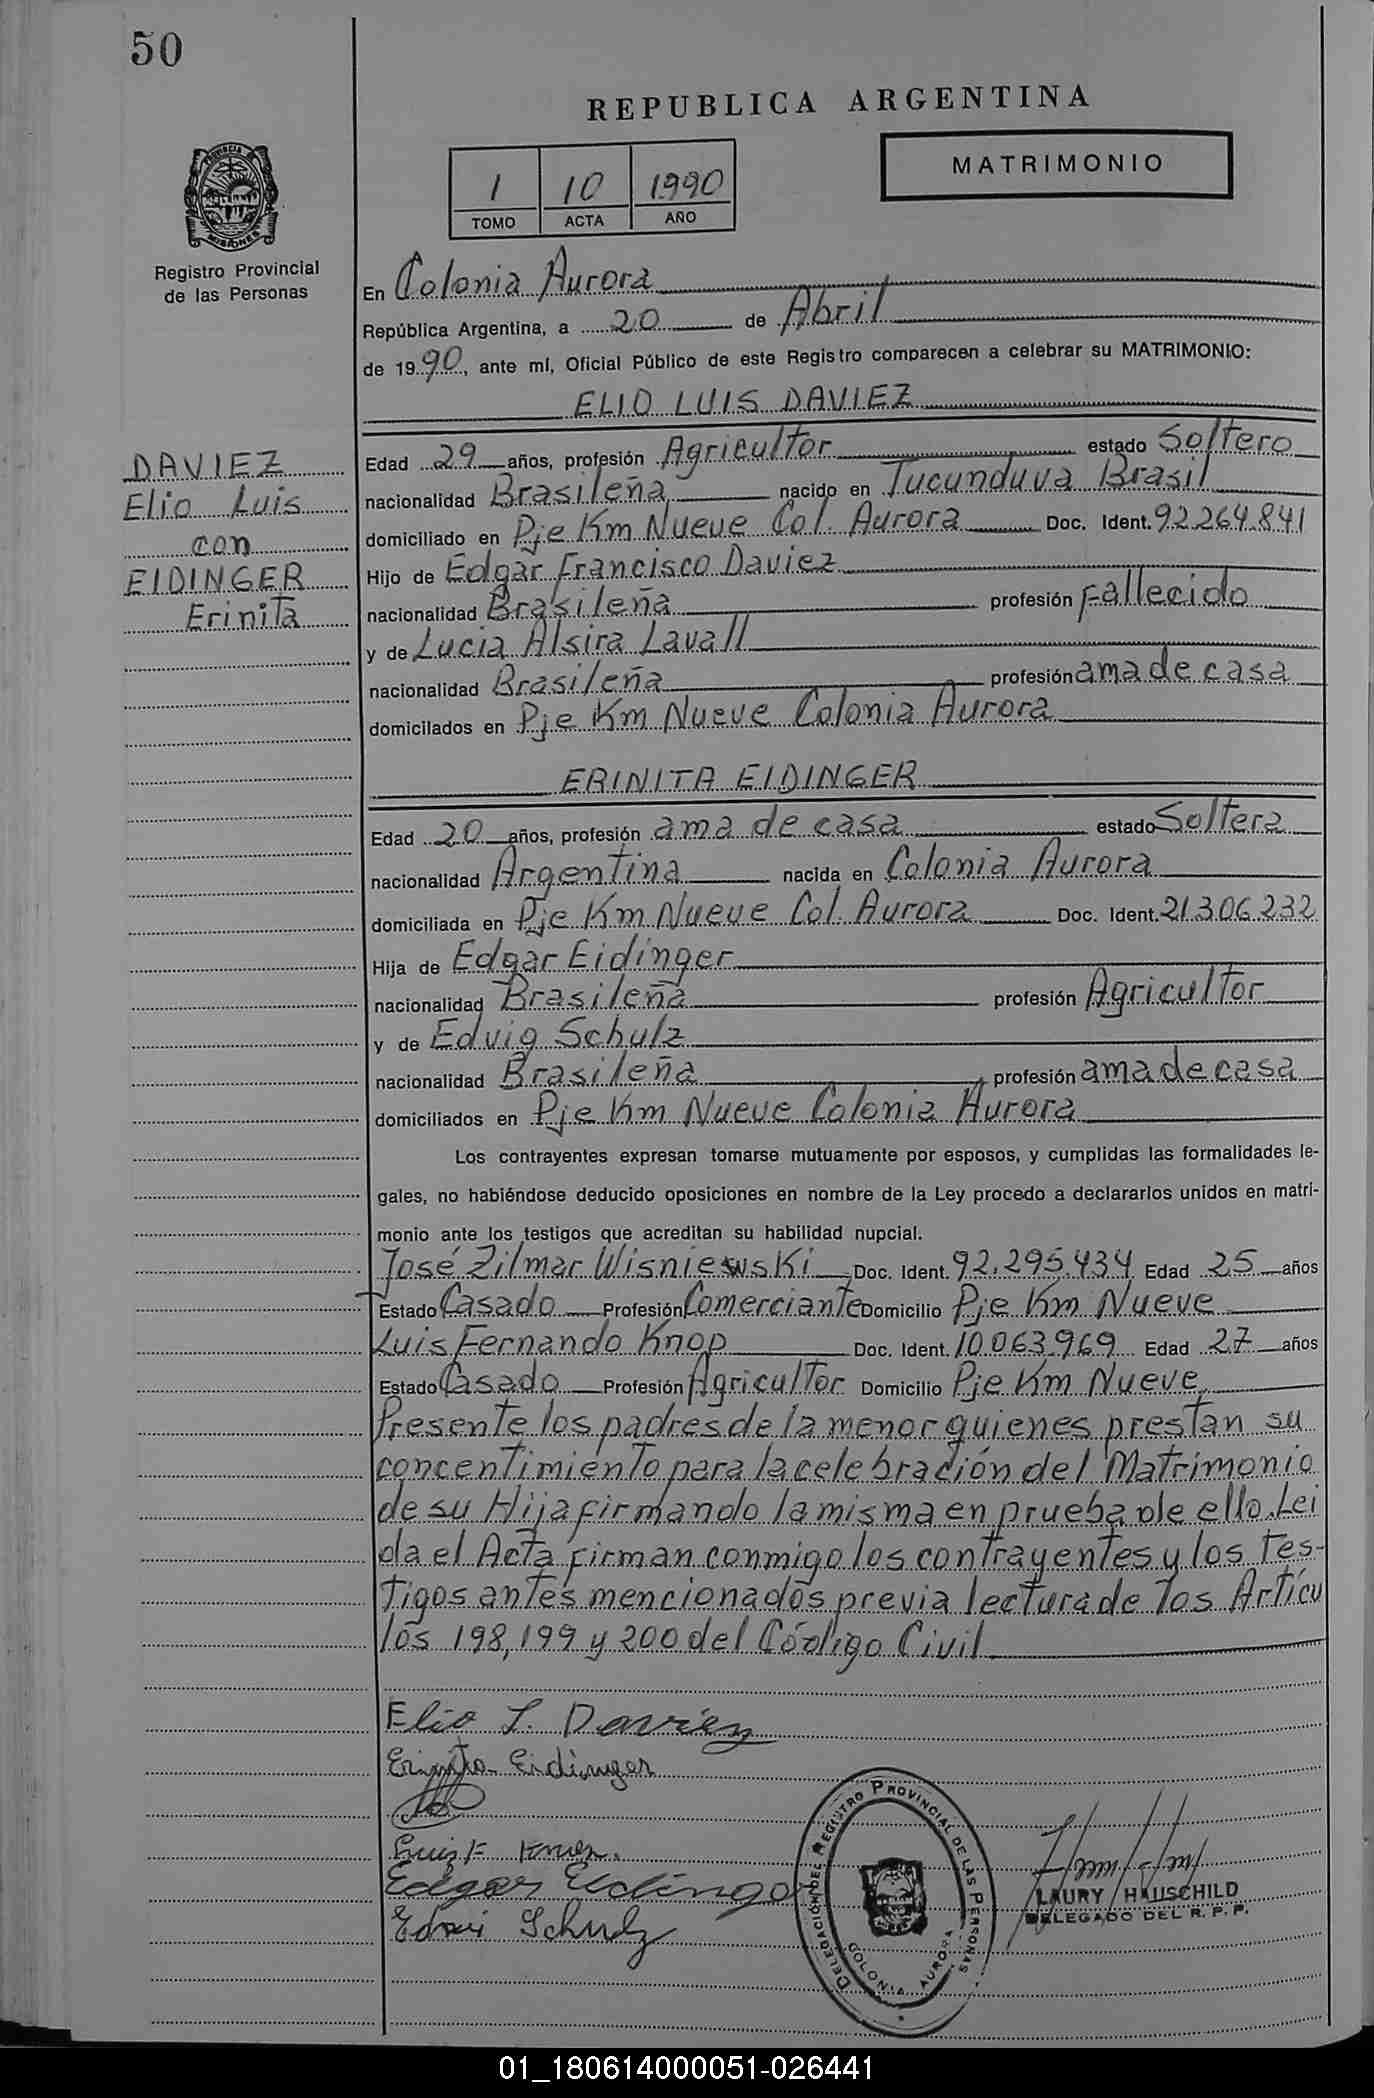 50
REPUBLICA ARGENTINA
MATRIMONIO
1 10 1990
TOMO ACTA AÑO
PROVINCIA DE MISIONES
Registro Provincial
de las Personas
En Colonia Aurora
República Argentina, a 20 de Abril
de 1990, ante mí, Oficial Público de este Registro comparecen a celebrar su MATRIMONIO:
ELIO LUIS DAVIEZ
DAVIEZ
Elio Luis
con
EIDINGER
Erinita
Edad 29 años, profesión Agricultor estado Soltero
nacionalidad Brasileña nacido en Tucunduva Brasil
domiciliado en Pje Km Nueve Col. Aurora Doc. Ident. 92.264.841
Hijo de Edgar Francisco Daviez
nacionalidad Brasileña profesión Fallecido
y de Lucia Alsira Lavall
nacionalidad Brasileña profesión ama de casa
domicilados en Pje Km Nueve Colonia Aurora
ERINITA EIDINGER
Edad 20 años, profesión ama de casa estado Soltera
nacionalidad Argentina nacida en Colonia Aurora
domiciliada en Pje Km Nueve Col. Aurora Doc. Ident. 21.306.232
Hija de Edgar Eidinger
nacionalidad Brasileña profesión Agricultor
y de Edvig Schulz
nacionalidad Brasileña profesión ama de casa
domiciliados en Pje Km Nueve Colonia Aurora
Los contrayentes expresan tomarse mutuamente por esposos, y cumplidas las formalidades le-
gales, no habiéndose deducido oposiciones en nombre de la Ley procedo a declararlos unidos en matri-
monio ante los testigos que acreditan su habilidad nupcial.
José Zilmar Wisniewski Doc. Ident. 92.295.434 Edad 25 años
Estado Casado Profesión Comerciante Domicilio Pje Km Nueve
Luis Fernando Knop Doc. Ident. 10.063.969 Edad 27 años
Estado Casado Profesión Agricultor Domicilio Pje Km Nueve
Presente los padres de la menor quienes prestan su
concentimiento para la celebración del Matrimonio
de su Hija firmando la misma en prueba de ello. Lei
da el Acta firman conmigo los contrayentes y los tes-
tigos antes mencionados previa lectura de los Artícu
los 198, 199 y 200 del Código Civil
Elio L. Daviez
Erinita Eidinger
Luis F. Knop.
Edgar Eidinger
Edvi Schulz
DELEGACIÓN DEL REGISTRO PROVINCIAL DE LAS PERSONAS
COLONIA AURORA
LAURY HAUSCHILD
DELEGADO DEL R. P. P.
01_180614000051-026441